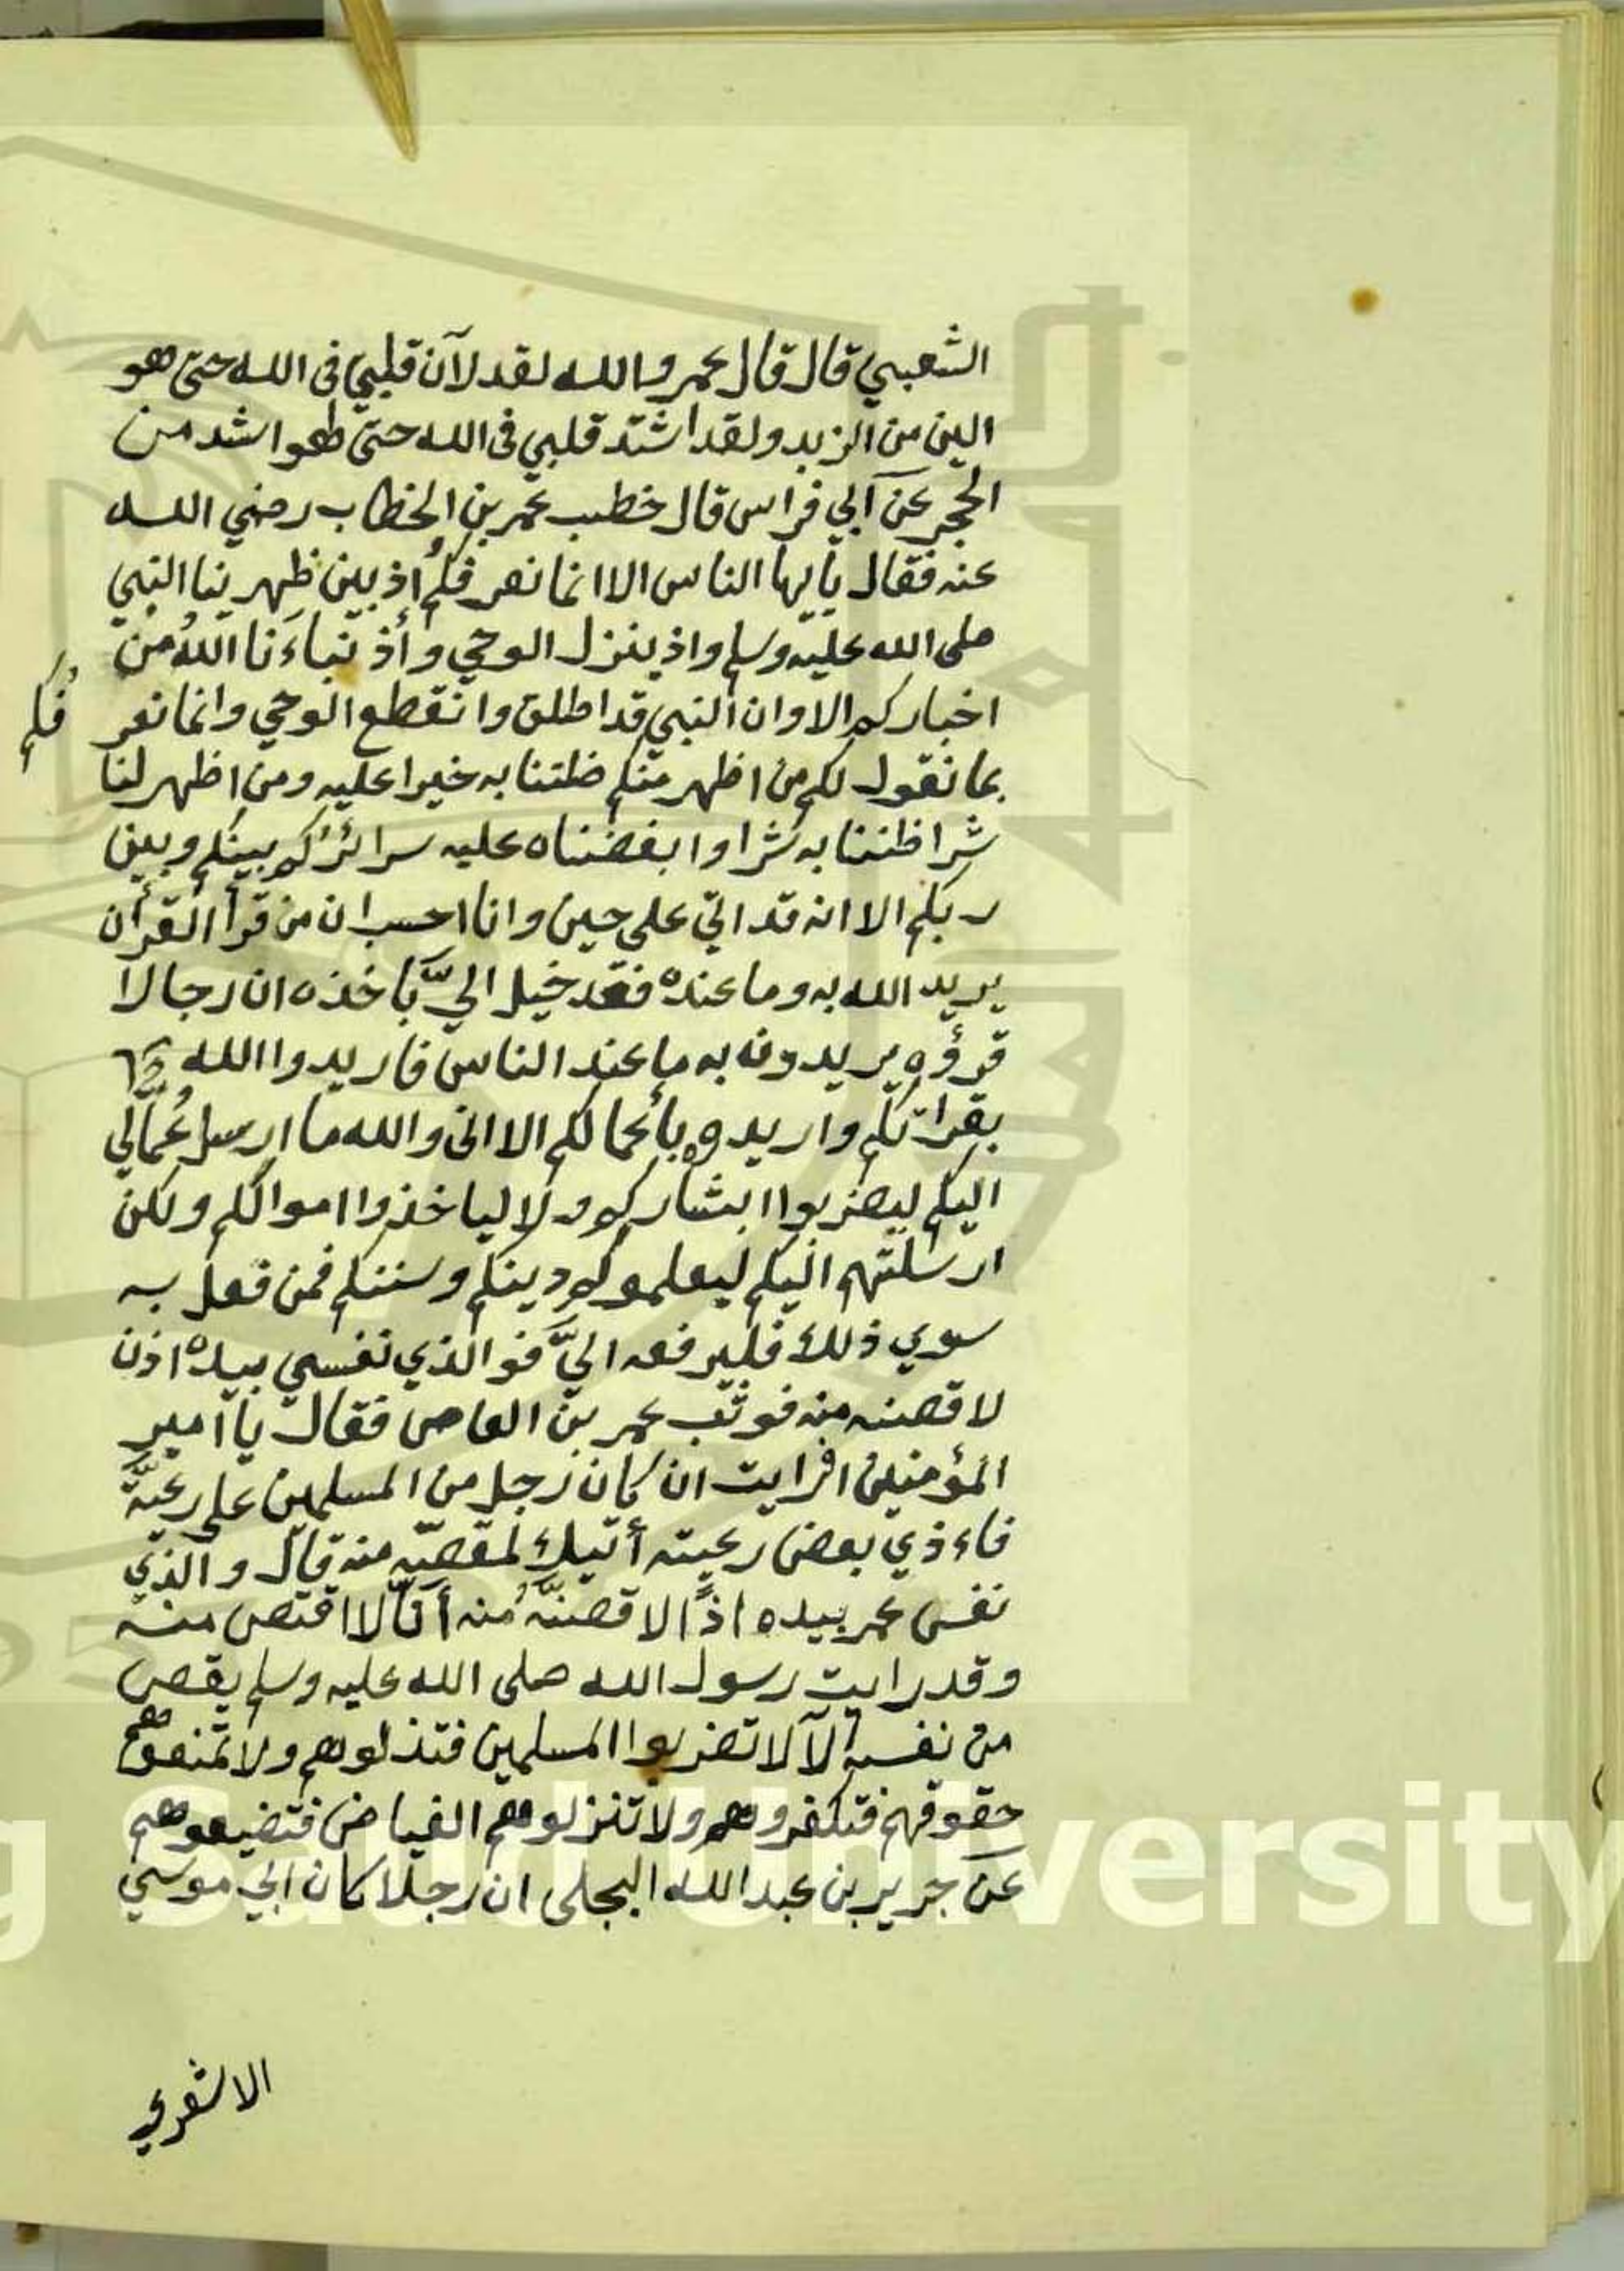 الشعبي قال قال عمر والله لقد لآن قلبي فى الله حتى هو
الين من الزبد ولقد اشتد قلبي فى الله حتى طهوا شد من
الحجر عن آبي فراس قال خطب عمر بن الخطاب رضي الله
عنه فقال يايها الناس الا انما نعرفكم اذ بين ظهرينا النبي
صلى الله عليه وسلم واذ ينزل الوحي وأذ نباءَنا اللهُ من
اخباركم الا وان النبي قد اطلق وانقطع الوحي وانما نعر
فكم
بما نقول لكم من اظهر منكم ظننا به خيرا عليه ومن اظهر لنا
شرا ظننا به شرا وابغضناه عليه سرائركم بينكم وبين
ربكم الا انه قد اتي علي حين وانا احسب ان من قرأ القرأن
يريد الله به وما عنده فقد خيل اليَّ بآخذه ان رجالا
قرؤه يريدونه به ما عند الناس فاريدوا الله
بقراتكم واريدوه بأعمالكم الا انى والله ما ارسل عُمّالي
اليكم ليضربوا ابشاركم ولا لياخذوا اموالكم ولكن
ارسلتهم اليكم ليعلموكم دينكم وسننكم فمن فعل به
سوي ذلك فليرفعه اليَّ فوالذي نفسي بيده اذن
لاقصنه منه فوثب عمر بن العاص فقال يا امير
المؤمنين افرايت ان كان رجل من المسلمين على رعيَّة
فاءذي بعض رعيته أئيك لمقصّه منه قال والذي
نفس عمر بيده اذًا لاقصنَّهُ منه أنَّا لا اقتص منه
وقد رايت رسول الله صلى الله عليه وسلم يقص
من نفسه ألآ لا تضربوا المسلمين فتذلوهم ولا تمنعوهم
حقوقهم فتكفروهم ولا تنزلوهم الغياض فتضيعوهم
عن جرير بن عبد الله البجلى ان رجلا كان ابي موسي
الاشعري
King Saud University